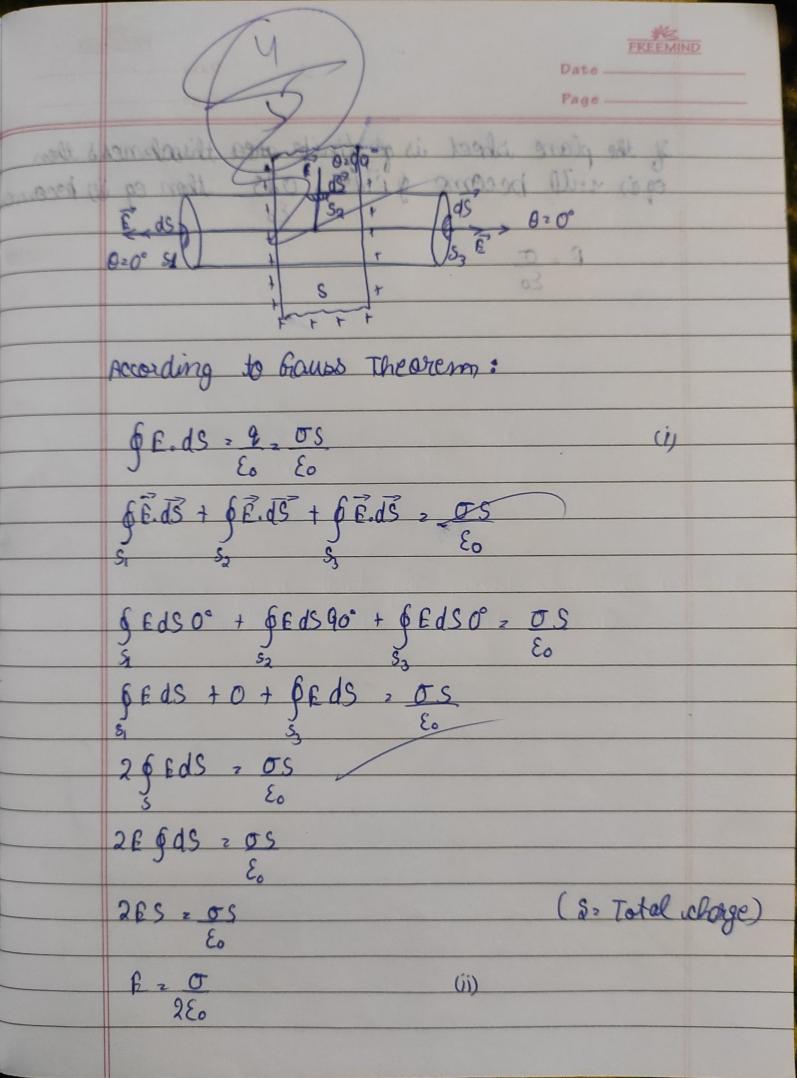 4
5
FREEMIND
Date
Page
θ=90°
E dS
S2
E dS
θ=0° S1
dS
S3 E
θ=0°
S
+ + + +
According to Gauss Theorem:
∮E.dS = q/ε0 = σS/ε0 (i)
∮S1 E⃗.dS⃗ + ∮S2 E⃗.dS⃗ + ∮S3 E⃗.dS⃗ = σS/ε0
∮S1 EdS0° + ∮S2 EdS90° + ∮S3 EdS0° = σS/ε0
∮S1 EdS + 0 + ∮S3 EdS = σS/ε0
2∮S EdS = σS/ε0
2E∮dS = σS/ε0
2ES = σS/ε0 (S= Total charge)
E = σ/2ε0 (ii)